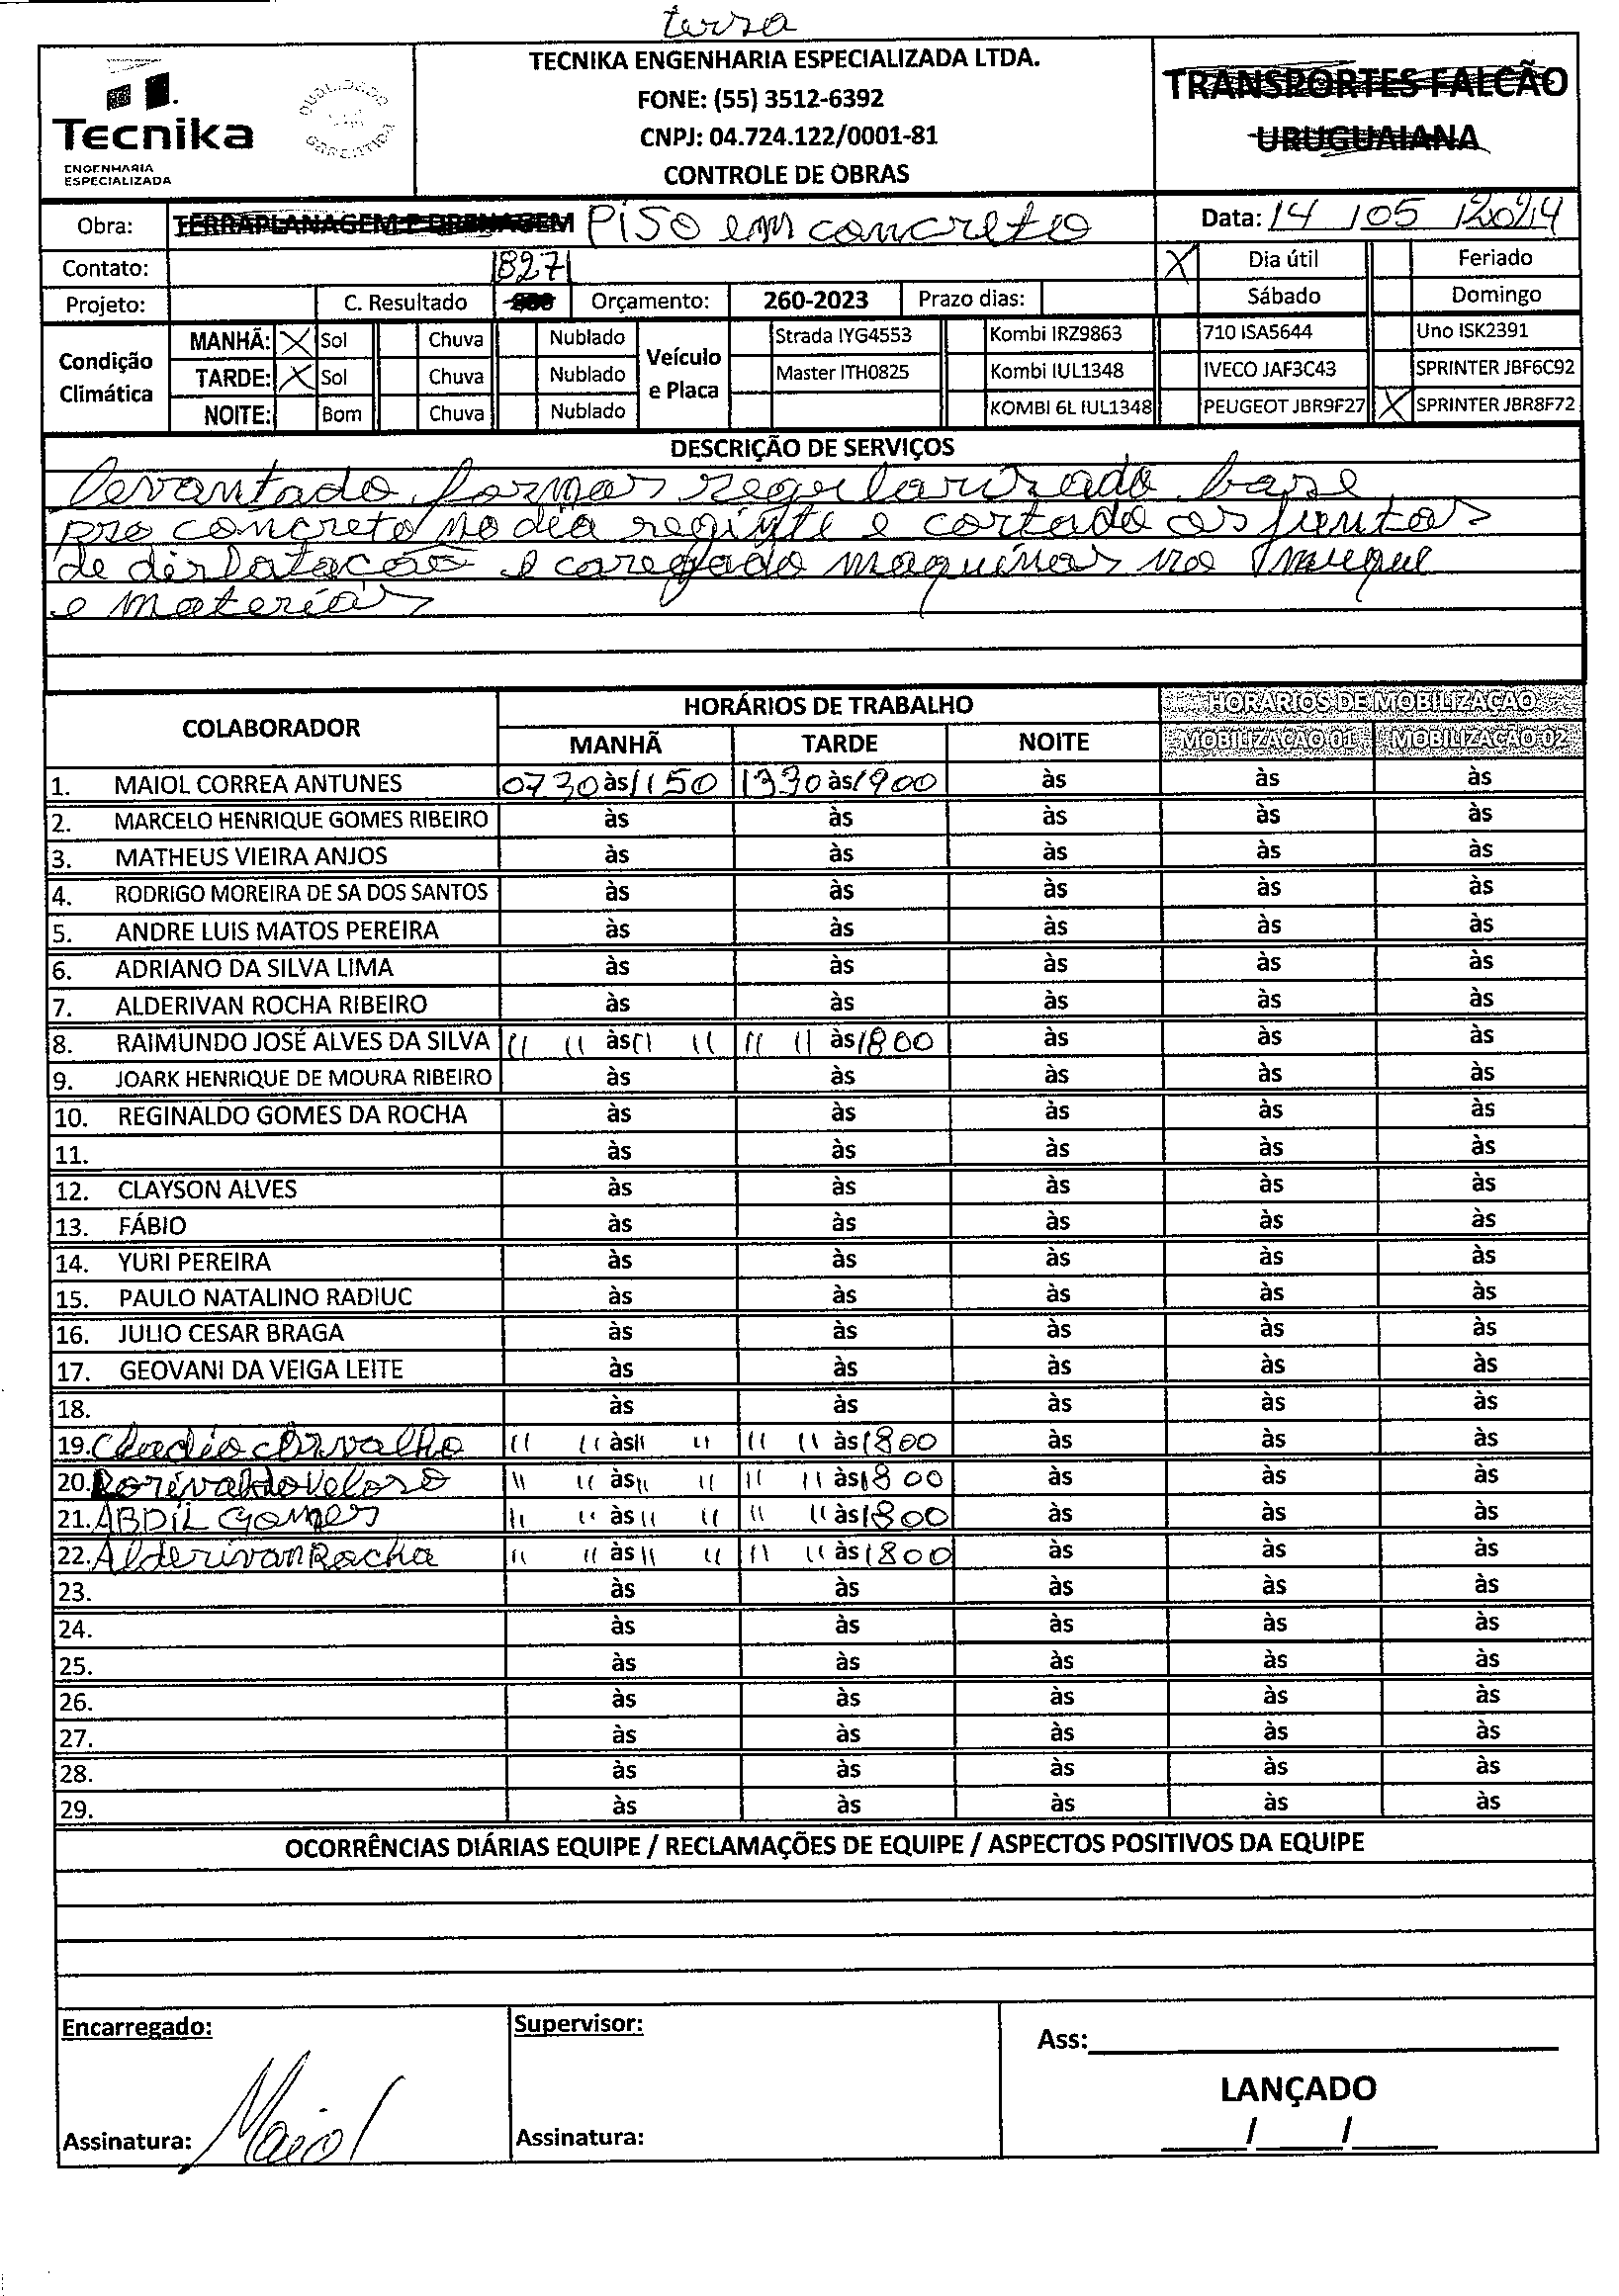 tersa
Tecnika
ENGENHARIA
ESPECIALIZADA
QUALIDADE
GARANTIDA
TECNIKA ENGENHARIA ESPECIALIZADA LTDA.
FONE: (55) 3512-6392
CNPJ: 04.724.122/0001-81
CONTROLE DE OBRAS
TRANSPORTES FALCÃO
URUGUAIANA
Obra: TERRAPLANAGEM E DRENAGEM PISO em concreto Data: 14 / 05 / 2024
Contato: 1827 X Dia útil Feriado
Projeto: C. Resultado Orçamento: 260-2023 Prazo dias: Sábado Domingo
Condição Climática
MANHÃ: X Sol Chuva Nublado
TARDE: X Sol Chuva Nublado
NOITE: Bom Chuva Nublado
Veículo e Placa
Strada IYG4553 Kombi IRZ9863 710 ISA5644 Uno ISK2391
Master ITH0825 Kombi IUL1348 IVECO JAF3C43 SPRINTER JBF6C92
KOMBI 6L IUL1348 PEUGEOT JBR9F27 X SPRINTER JBR8F72
DESCRIÇÃO DE SERVIÇOS
levantado formas regularizado base
pro concreto no dia seginte e cortado as juntas
de dislatação e caregado maquinas no munque
e materias
COLABORADOR HORÁRIOS DE TRABALHO HORÁRIOS DE MOBILIZAÇÃO
MANHÃ TARDE NOITE MOBILIZAÇÃO 01 MOBILIZAÇÃO 02
1. MAIOL CORREA ANTUNES 0730 às 1150 1330 às 1900 às às às
2. MARCELO HENRIQUE GOMES RIBEIRO às às às às às
3. MATHEUS VIEIRA ANJOS às às às às às
4. RODRIGO MOREIRA DE SA DOS SANTOS às às às às às
5. ANDRE LUIS MATOS PEREIRA às às às às às
6. ADRIANO DA SILVA LIMA às às às às às
7. ALDERIVAN ROCHA RIBEIRO às às às às às
8. RAIMUNDO JOSÉ ALVES DA SILVA " " às " " " " às 1800 às às às
9. JOARK HENRIQUE DE MOURA RIBEIRO às às às às às
10. REGINALDO GOMES DA ROCHA às às às às às
11. às às às às às
12. CLAYSON ALVES às às às às às
13. FÁBIO às às às às às
14. YURI PEREIRA às às às às às
15. PAULO NATALINO RADIUC às às às às às
16. JULIO CESAR BRAGA às às às às às
17. GEOVANI DA VEIGA LEITE às às às às às
18. às às às às às
19. Claudio Carvalho " " às " " " " às 1800 às às às
20. Dorivaldo Veloso " " às " " " " às 1800 às às às
21. ABDIL Gomes " " às " " " " às 1800 às às às
22. Alderivan Rocha " " às " " " " às 1800 às às às
23. às às às às às
24. às às às às às
25. às às às às às
26. às às às às às
27. às às às às às
28. às às às às às
29. às às às às às
OCORRÊNCIAS DIÁRIAS EQUIPE / RECLAMAÇÕES DE EQUIPE / ASPECTOS POSITIVOS DA EQUIPE
Encarregado: Supervisor: Ass:
LANÇADO
Assinatura: Maiol Assinatura: / /